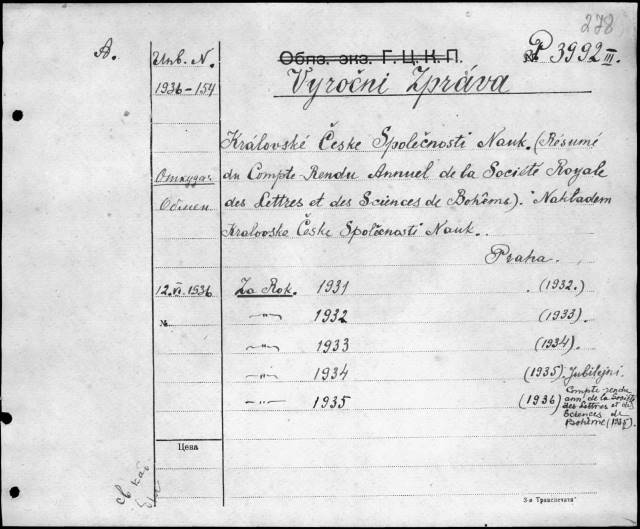 278
A.
Инв. N.
Обяз. экз. Г. Ц. К. П.
№ P 3992 III.
1936-154
Vyročni Zpráva
Královské Česke Společnosti Nauk. (Résumé
Откуда
du Compte-Rendu Annuel de la Société Royale
Обмен
des Lettres et des Sciences de Bohême). Nakladem
Kralovske Česke Společnosti Nauk.
Praha.
12. VI. 1936
Za Rok. 1931 (1932.)
№
-"- 1932 (1933)
-"- 1933 (1934)
-"- 1934 (1935). Jubilejni.
-"- 1935 (1936)
Compte-rendu
ann. de la Société
des Lettres et des
Sciences de
Bohême
Цена
св каб.
3-я Транспечати